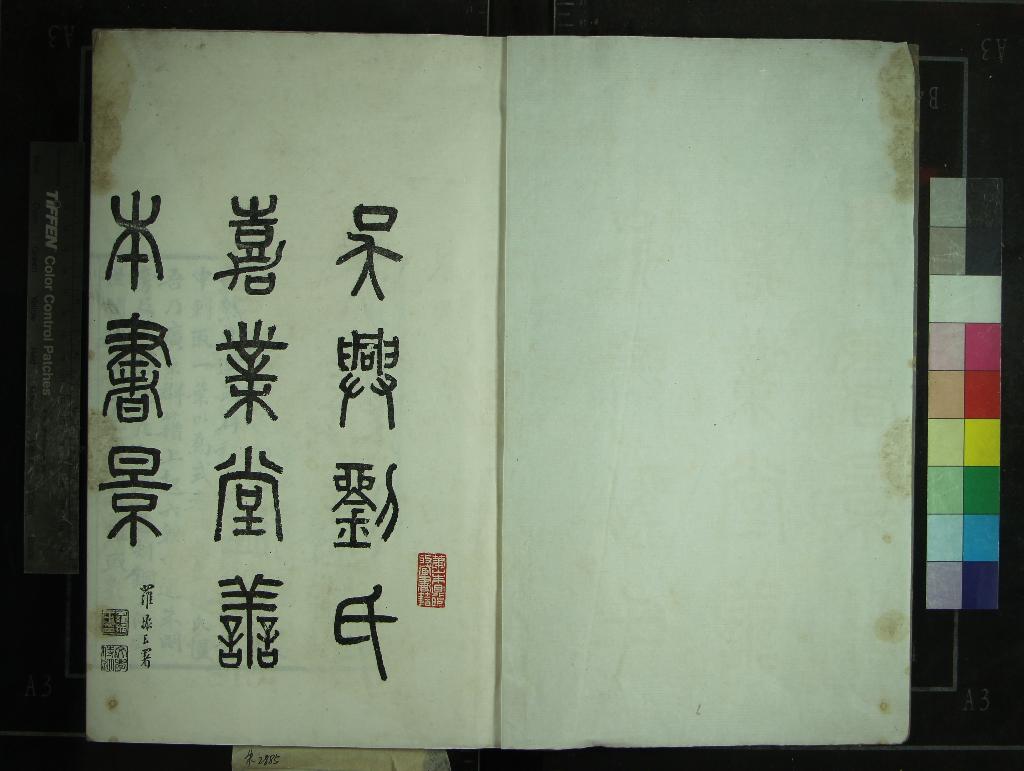 吳興劉氏
嘉業堂善
本書景
羅振玉署
朱2885
TIFFEN Color Control Patches
A3
A3
A3
A3
B4